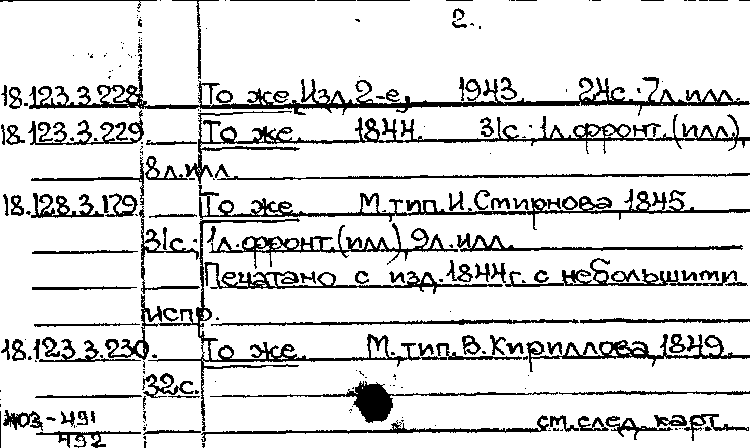 2.
18.123.3.228. То же, Изд. 2-е, 1943. 24с.; 7л.илл.
18.123.3.229. То же. 1844. 31с.; 1л.фронт.(илл),
8л.илл.
18.128.3.179. То же М.,тип.И.Смирнова, 1845.
31с.; 1л.фронт.(илл), 9л.илл.
Печатано с изд.1844г. с небольшити
испр.
18.123.3.230. То же. М.,тип.В.Кириллова, 1849.
32с.
ЖОЗ-491
492 см.след. карт.